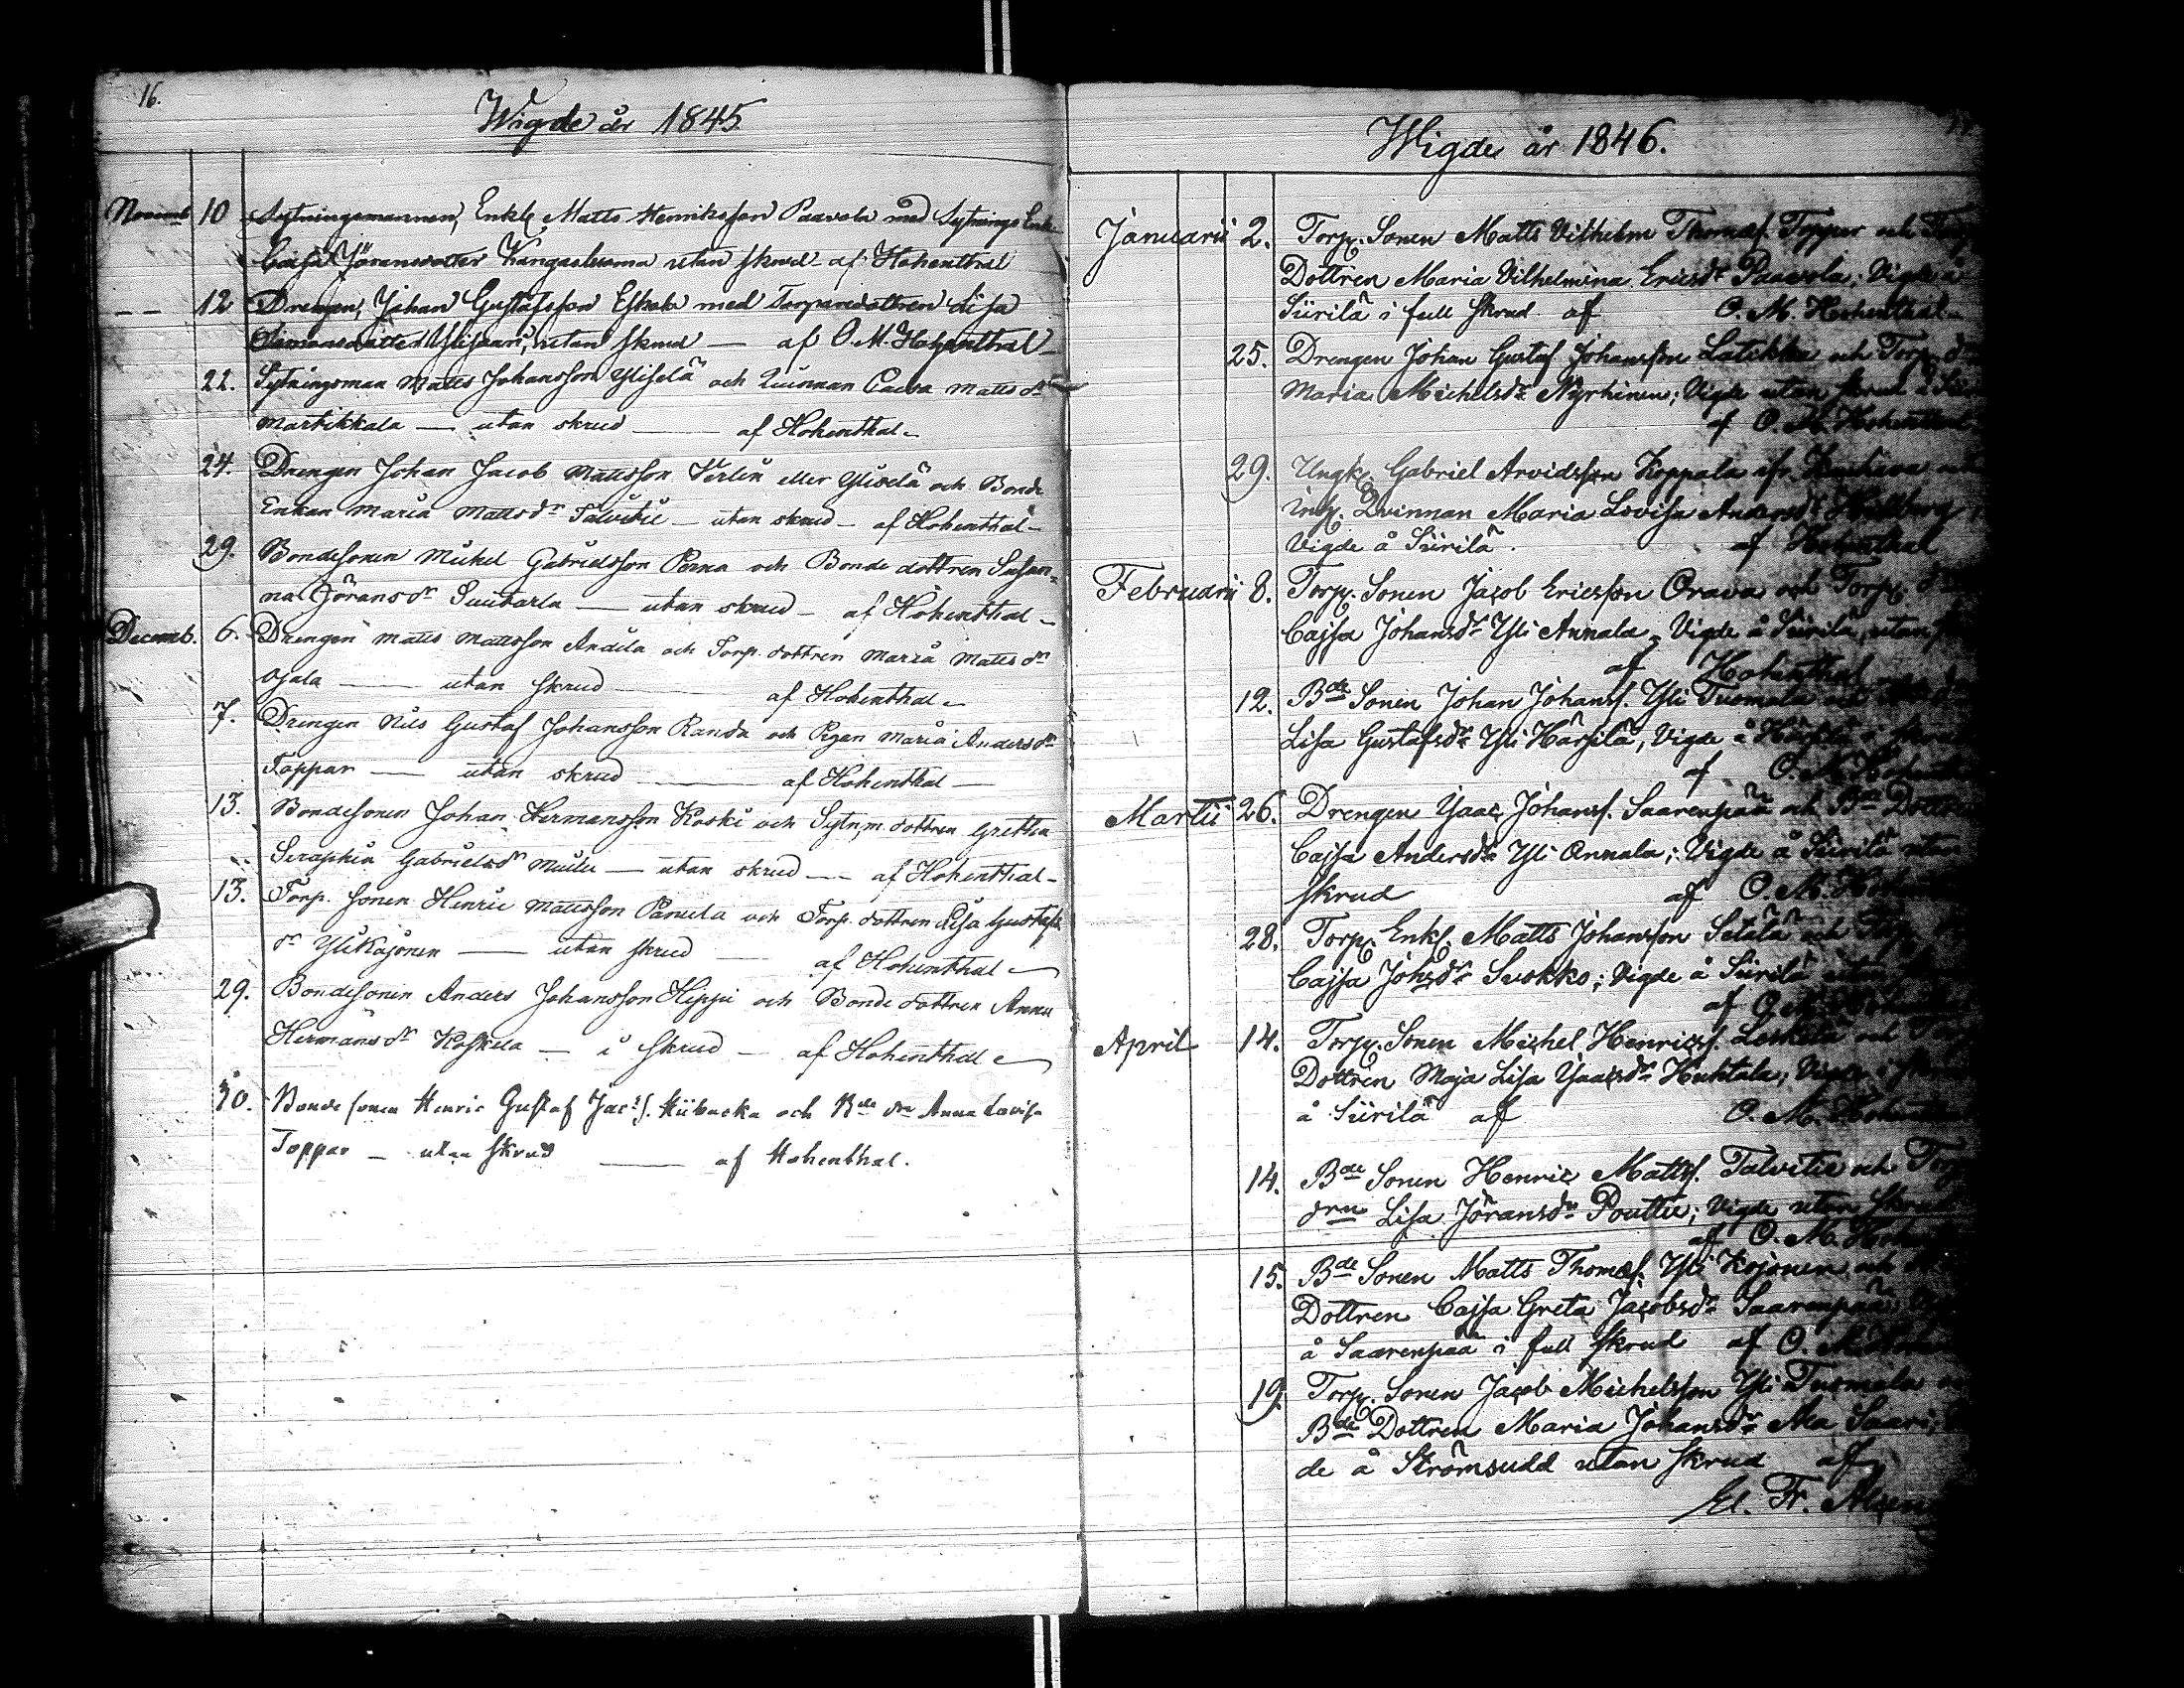 16.
Wigde år 1845
Novemb 10 Sytningsmannen, Enkl. Matts Henriksson Paavola med Sytnings Enk.
Caisa Jöransdotter Kangasluoma utan skrud af Hohenthal
— — 12 Drengen, Johan Gustafsson med Torparedottren Lisa
Simonsdotter utan skrud — af O. M. Hohenthal
22. Sytningsman Matts Johansson Yliselä och Qvinnan Matts dr
Martikkala — utan skrud — af Hohenthal
24. Drengen Johan Jacob Mattsson eller Yliselä och Bonde
Enkan Maria Mattsdr Talvitie — utan skrud — af Hohenthal —
29. Bondesonen Mickel Gabrielsson Perna och Bonde dottren Susan-
na Göransdr — utan skrud — af Hohenthal —
Decemb. 6. Drengen Matts Mattsson Andila och Torp. dottren Maria Matts dr
Ojala — utan skrud — af Hohenthal
7. Drengen Nils Gustaf Johansson Randa och Pigan Maria Anders dr
Toppar — utan skrud — af Hohenthal —
13. Bondesonen Johan Hermansson Koski och Sytn.m. dottren Gretha
Seraphia Gabrielsdr — utan skrud — af Hohenthal —
13. Torp. sonen Henric Mattsson Panula och Torp. dottren Lisa Gustafs
dr Ylikojonen — utan skrud — af Hohenthal
29. Bondesonen Anders Johansson Hippi och Bonde dottren Anna
Hermans dr Koskela — i skrud — af Hohenthal
30. Bondesonen Henric Gustaf Jacs. Hiibacka och Bde drn Anna Lovisa
Toppar — utan skrud — af Hohenthal.
Wigde år 1846.
Januarii 2. Torp. Sonen Matts Vilhelm Thomas. Toppar och
Dottren Maria Vilhelmina Ericsdr Paavola; Vigde å
Siirilä i full skrud af O. M. Hohenthal
25. Drengen Johan Gustaf Johansson Latikka och Torp.
Maria Michelsdr Nyrhinen; Vigde utan skrud å
af O. M. Hohenthal
29. Ungk. Gabriel Arvidsson Koppala ifr. Kauhava
inh. Qvinnan Maria Lovisa Andersdr Hällberg
Vigde å Siirilä. af Hohenthal
Februarii 8. Torp. Sonen Jacob Ericsson Orava och Torp.
Cajsa Johansdr Yli Annala, Vigde å Siirilä, utan
af Hohenthal
12. Bde Sonen Johan Johans. Yli Tuomala och
Lisa Gustafsdr Yli Härsilä, Vigde å Härsilä i
af O. M.
Martii 26. Drengen Isaac Johans. Saarenpää och Bde Dottr
Cajsa Andersdr Yli Annala; Vigde å Siirilä utan
skrud af O. M.
28. Torp. Enkl. Matts Johansson Setälä och
Cajsa Johsdr Suokko; Vigde å Siirilä utan
af
April 14. Torp. Sonen Michel Henrics. Loskela och
Dottren Maja Lisa Isacsdr Huhtala; Vigde i
å Siirilä af O. M.
14. Bde Sonen Henric Matts. Talvitie och Torp
drn Lisa Jöransdr Pouttu; Vigde utan skrud
af O. M.
15. Bde Sonen Matts Thomas. Yli Kojonen och
Dottren Cajsa Greta Jacobsdr Saarenpää;
å Saarenpää i full skrud af O. M.
19. Torp. Sonen Jacob Michelsson Yli Tuomala
Bde Dottren Maria Johansdr Ala Saari;
de å Strömsudd utan skrud af
Fr.